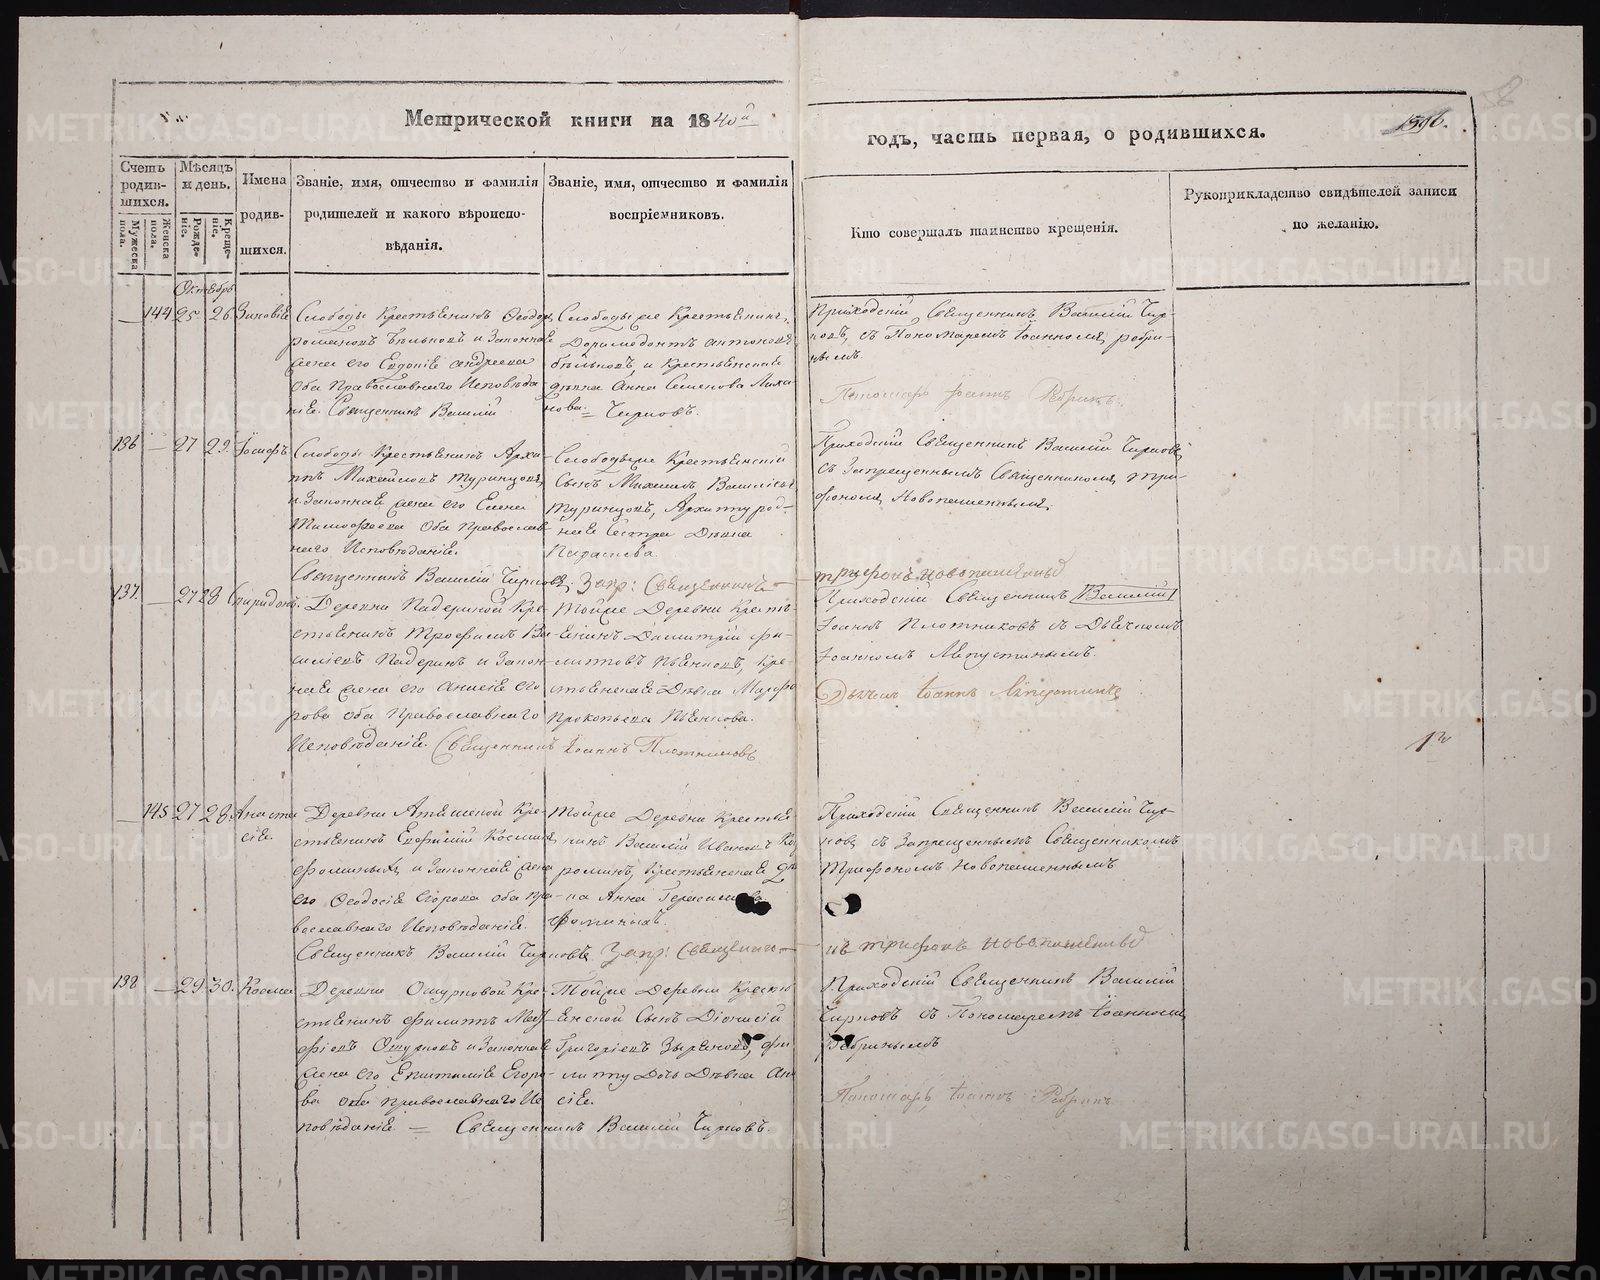 Метрической книги на 1840й
годъ, часть первая, о родившихся.
Счетъ родив-шихся.
Мѣсяцъ и день.
Имена родив-шихся.
Званіе, имя, отчество и фамилія
родителей и какого вѣроиспо-
вѣданія.
Званіе, имя, отчество и фамилія
воспріемниковъ.
Кто совершалъ таинство крещенія.
Рукоприкладство свидѣтелей записи
по желанію.
Мужеска пола.
Женска пола.
Рожде-ніе.
Креще-ніе.
Октябрь
144 25 26 Зиновіе
Слободы Крестьянинъ Ѳеодоръ
и Законна
жена его Евдокіе андреева
Оба Православнаго Исповѣда
ніе. Священникъ Василій Чирковъ.
Слободы Крестьянинъ
Доримедонтъ антоновъ
Бѣльковъ, и Крестьянская
дѣвка Анна Семенова
Приходскій Священникъ Василій Чир-
ковъ, съ Пономаремъ Іоанномъ Ребри-
нымъ.
Пономарь Іоаннъ Ребринъ.
136 27 29 Іосифъ
Слободы Крестьянинъ Архи
ппъ Михайловъ Туринцовъ,
и Законная жена его Елена
Тимофеева Оба Православ-
наго Исповѣданіе.
Священникъ Василій Чирковъ,
Крестьянскій
Сынъ Михаилъ Василіевъ
Туринцовъ, Архиппу род-
ная Сестра Дѣвка
Параскева.
Запр: Священникъ
Приходскій Священникъ Василій Чирковъ
съ Запрещеннымъ Священникомъ Три-
фономъ Новопашеннымъ.
трифонъ новопашенный
137 27 28 Спиридонъ.
Деревни Падериной Кре-
стьянинъ Трофимъ Ва-
силіевъ Падеринъ и Закон-
ная жена его Анисіе его
рова оба Православнаго
Исповѣданіе. Священникъ Іоаннъ Плотниковъ
Тойже Деревни Кресть
янинъ Димитрій фи-
липовъ Пьянковъ, Кре-
стьянская Дѣвка Марфа
Прокопьева Пьянкова.
Приходскій Священникъ Василій
Іоаннъ Плотниковъ съ Дьячкомъ
Іоанномъ
Дьячекъ Іоаннъ
145 27 28 Анаста
сіе.
Деревни Кре-
стьянинъ Евфимій Косминъ
Фоминыхъ, и Законная жена
его Ѳеодосіе Егорова оба пра-
вославнаго Исповѣданіе.
Священникъ Василій Чирковъ
Тойже Деревни Крестья
нинъ Василій Ивановъ
Крестьянская дѣ
вка Анна Герасимова
Фоминыхъ.
Запр: Священни-
Приходскій Священникъ Василій Чир-
ковъ съ Запрещеннымъ Священникомъ
Трифономъ Новопашеннымъ
къ трифонъ новопашенный
138 29 30 Косма
Деревни Ошурковой Кре-
стьянинъ филиппъ Меф-
фіевъ Ошурковъ и Законная
жена его Епистиміе Егоро-
ва оба православнаго Ис
повѣданіе. — Священникъ Василій Чирковъ.
Тойже Деревни Кресть
янской Сынъ Діонисій
Григоріевъ Зыряновъ, фи
липпу Дочь Дѣвка Ани
сіе.
Приходскій Священникъ Василій
Чирковъ съ Пономаремъ Іоанномъ
Ребринымъ
Пономарь Іоаннъ Ребринъ
METRIKI.GASO-URAL.RU